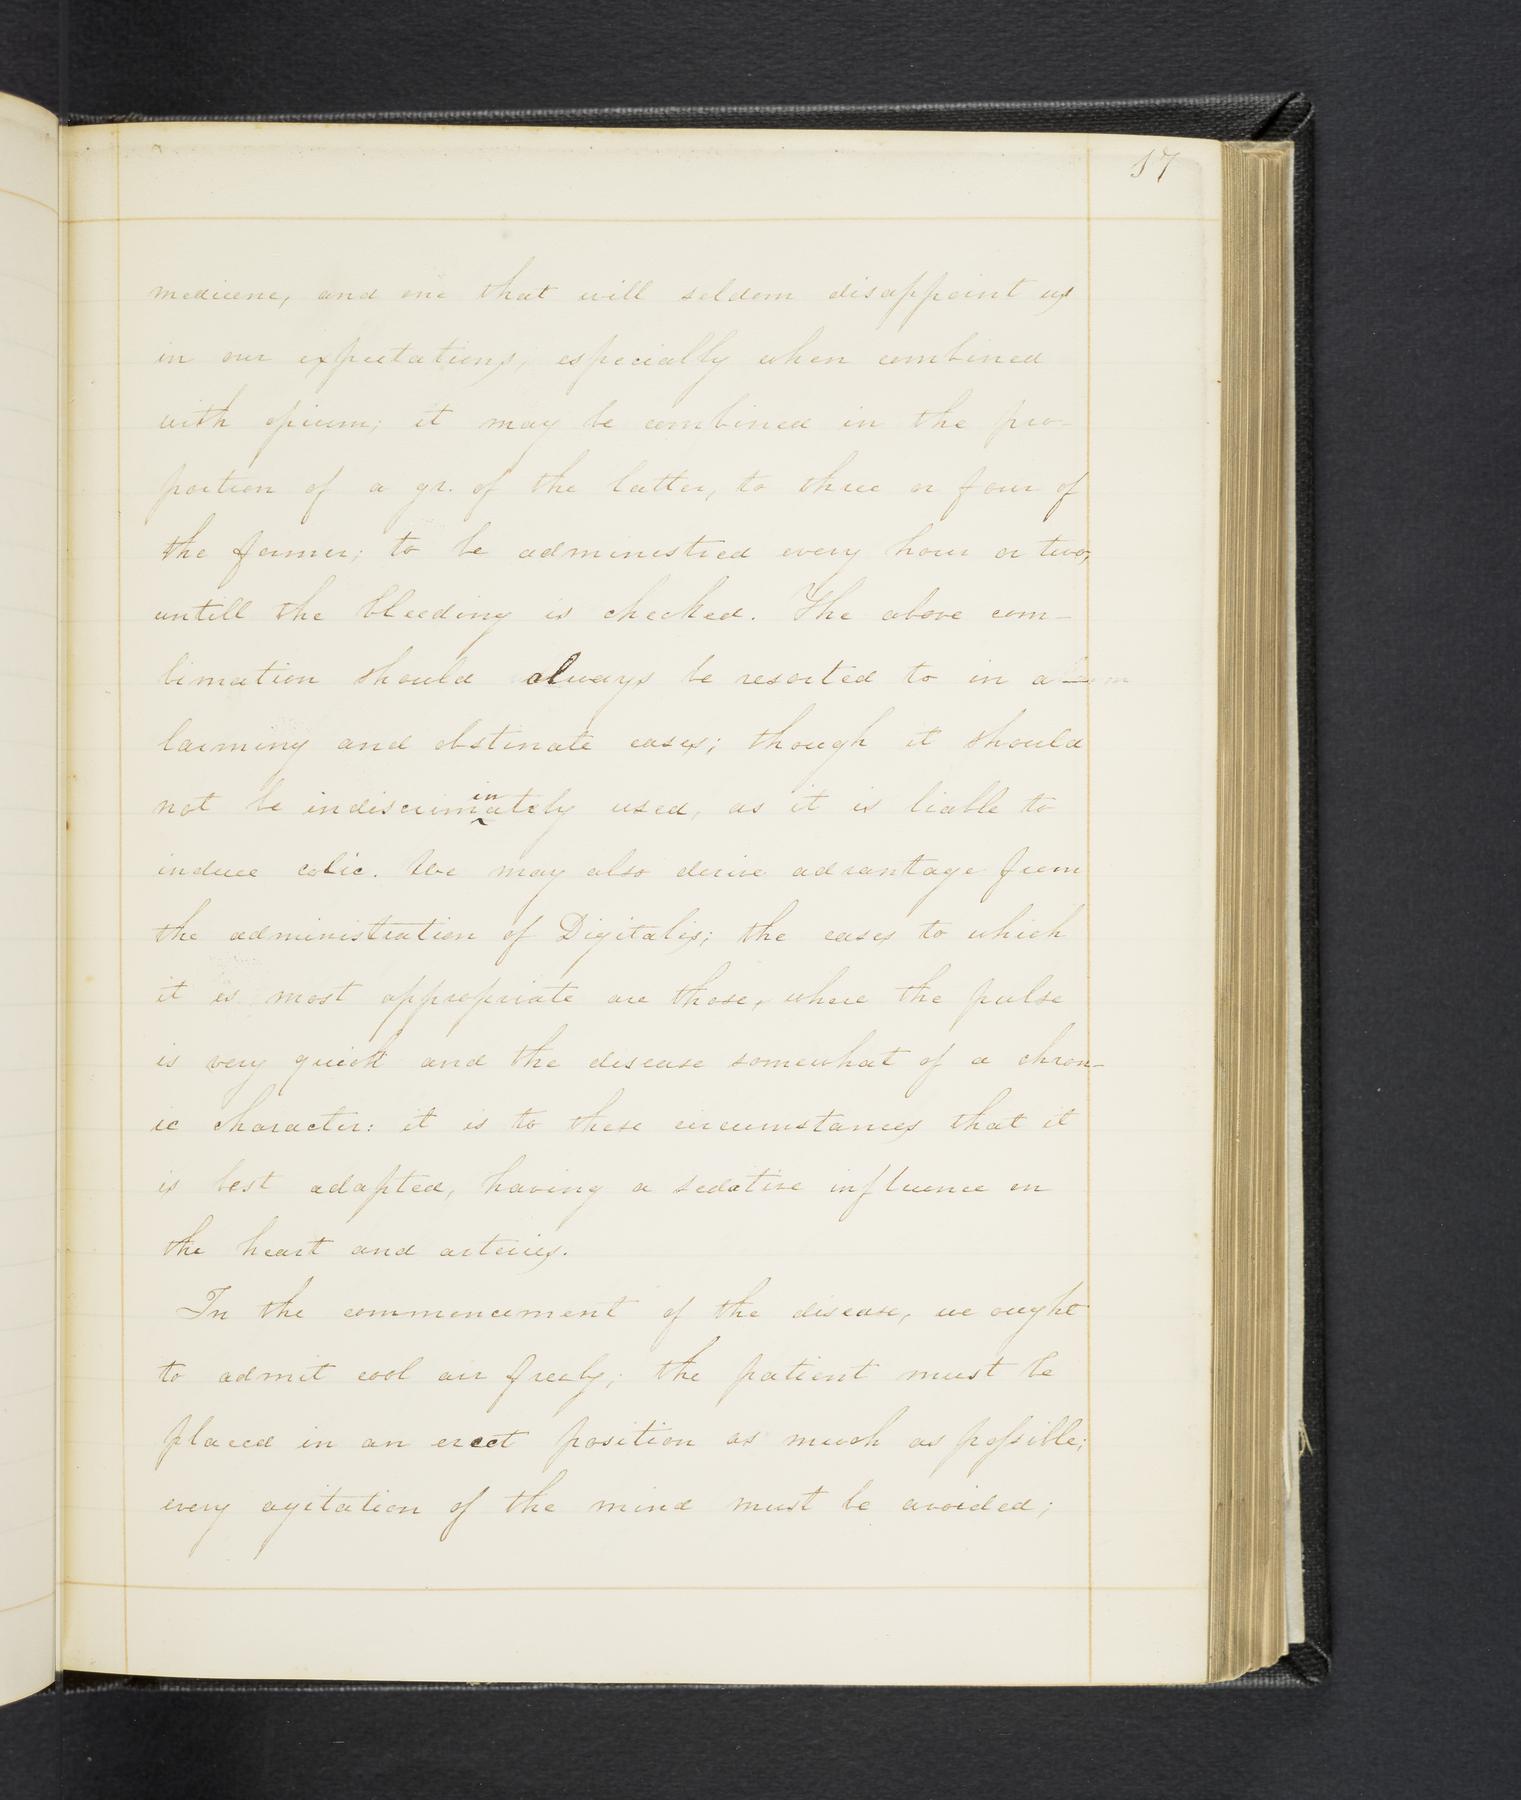 17
medicene, and one that will seldom disappoint us
in our expectations, especially when combined
with opium; it may be combined in the pro-
portion of a gr. of the latter, to three or four of
the former; to be administred every hour or two,
untill the bleeding is checked. The above com-
bination should always be resorted to in a-
larming and obstinate cases; though it should
not be indiscriminately used, as it is liable to
induce colic. We may also derive advantage from
the administration of Digitalis; the cases to which
it is most appropriate are those, where the pulse
is very quick and the disease somewhat of a chron-
ic character: it is to these circumstances that it
is best adapted, having a sedative influence on
the heart and arteries.
In the commencement of the disease, we ought
to admit cool air freely; the patient must be
placed in an erect position as much as possible;
every agitation of the mind must be avoided;